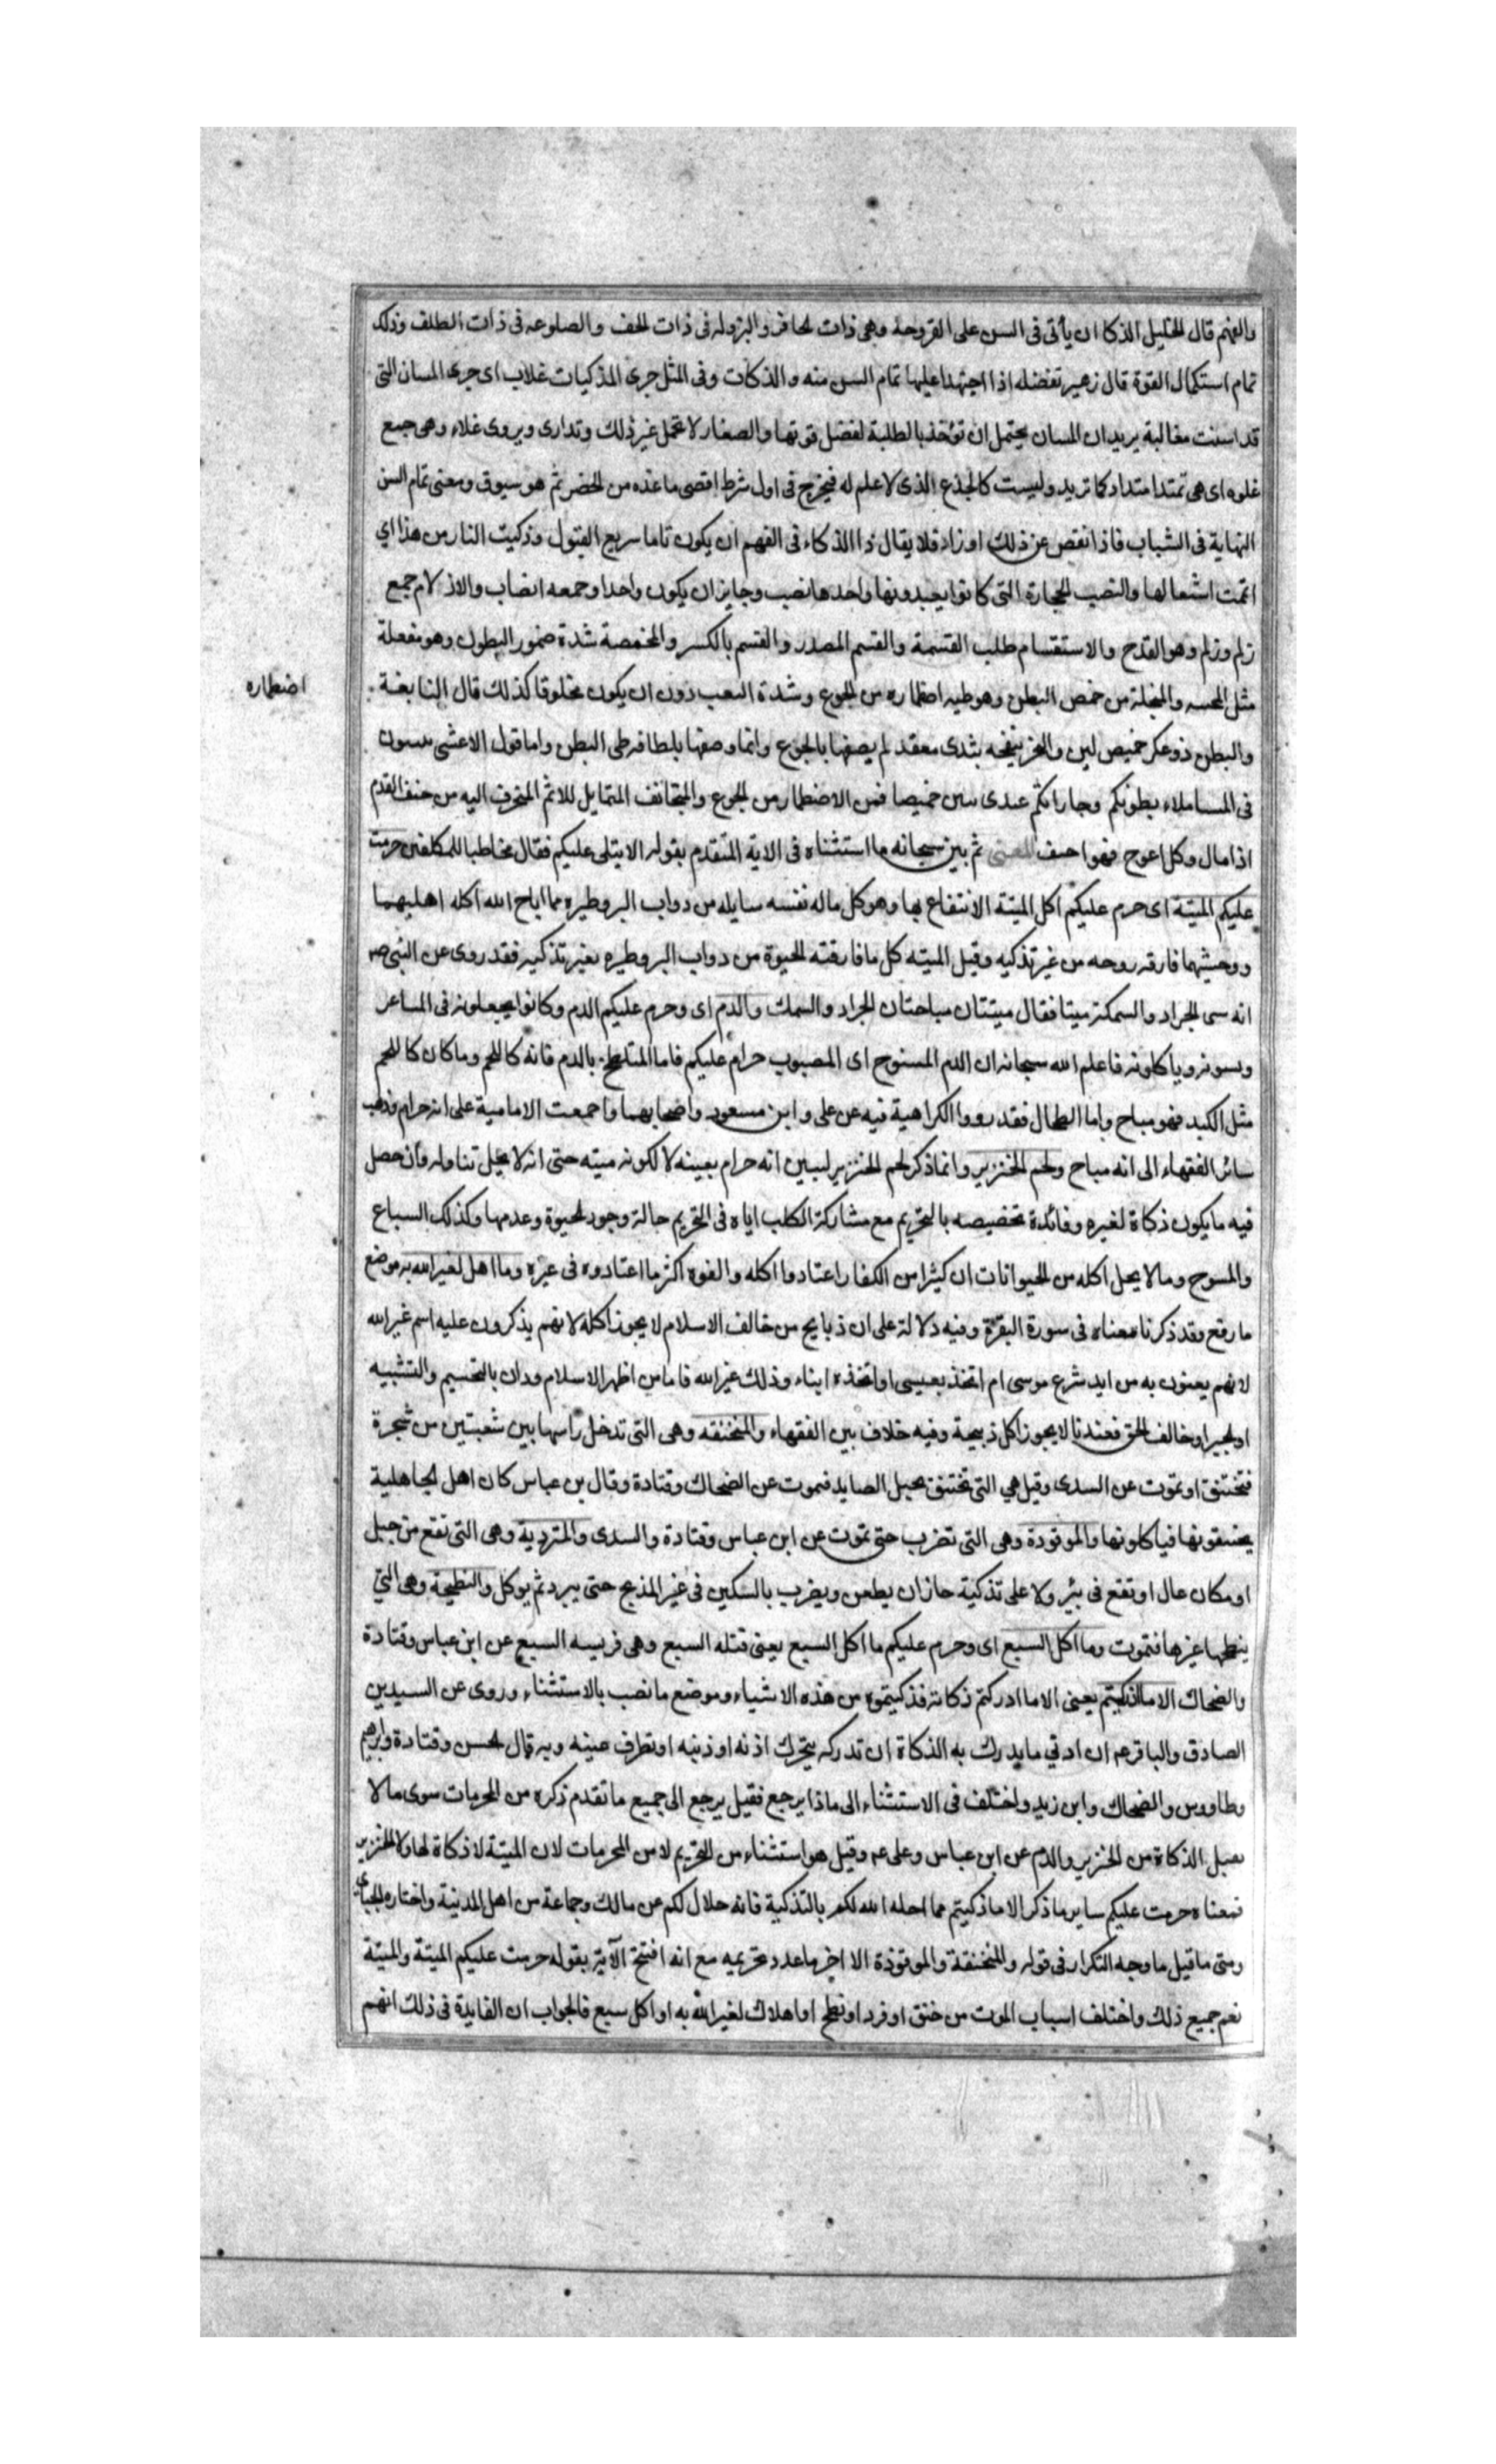 والفهم قال الخليل الذكا ان يأتى فى السن على القروحة وهى ذات الحافر والبزوله فى ذات الخف والصلوعه فى ذات الظلف وذلك
تمام استكمال القوة قال زهير تفضله اذا اجتهدا عليها تمام السن منه والذكات وفى المثل جرى المذكيات غلاب اى جرى المسان التى
قد اسنت مغالبة يريد ان المسان يحتمل ان تؤخذ بالطلبة لفضل قوتها والصغار لا تحمل غير ذلك وتدارى ويروى غلاء وهى جمع
غلوه اى هى تمتد امتدادكما تريد وليست كالجذع الذى لا علم له فيخرج فى اول شرط اقصى ما عنده من الحضر ثم هو سيوق ومعنى تمام السن
النهاية فى الشباب فاذا نقص عن ذلك او زاد فلا يقال ذا الذكاء فى الفهم ان يكون تاما سريع القبول وذكيت النار من هذا اي
اتمت اشعالها والنصب الحجارة التى كانوا يعبدونها واحدها نصب وجايز ان يكون واحدا وجمعه انصاب والازلام جمع
زلم وزلم وهو القدح والاستقسام طلب القسمة والقسم المصدر والقسم بالكسر والمخمصة شدة ضمور البطون وهو مفعلة
مثل المحسه والمبخلة من خمص البطن وهو طيه اضطماره من الجوع وشدة السعب دون ان يكون مخلوقا كذلك قال النابغة
اضطماره
والبطن ذو عكر خميص لين والنحر ينفخه بثدى معقد لم يصفها بالجوع وانما وصفها بلطافه طى البطن واما قول الاعشى سسون
فى المسا ملاء بطونكم وجاراتكم عندى سىن خميصا فمن الاضطمار من الجوع والمتجانف المتمايل للاثم المنحرف اليه من حنف القدم
اذا مال وكل اعوج فهو احنف المعنى ثم بين سبحانه ما استثناه فى الاية المتقدم بقوله الا يتلى عليكم فقال مخاطبا للمكلفين حرمت
عليكم الميتة اى حرم عليكم اكل الميتة الانتفاع بها وهو كل ما له نفسه سايله من دواب البر وطيره مما اباح الله اكله اهليهما
ووحشيهما فارقه روحه من غير تذكيه وقيل الميته كل ما فارقته الحيوة من دواب البر وطيره بغير تذكيه فقد روى عن النبى ص
انه سمى الجراد والسمكة ميتا فقال ميتتان مباحتان الجراد والسمك والدم اى وحرم عليكم الدم وكانوا يجعلونه فى المساعر
وىسونه وياكلونه فاعلم الله سبحانه ان الدم المسفوح اى المصبوب حرام عليكم فاما المتلطخ بالدم فانه كاللحم وما كان كاللحم
مثل الكبد فهو مباح واما الطحال فقد رووا الكراهية فيه عن على وابن مسعود واصحابهما واجمعت الامامية على انه حرام وذهب
سائر الفقهاء الى انه مباح ولحم الخنزير وانما ذكر لحم الخنزير ليبين انه حرام بعينه لا لكونه ميته حتى انه لا يحل تناوله وان حصل
فيه ما يكون ذكاة لغيره وفائدة تخصيصه بالتحريم مع مشاركة الكلب اياه فى التحريم حالة وجود الحيوة وعدمها وكذلك السباع
والمسوح وما لا يحل اكله من الحيوانات ان كثيرا من الكفار اعتادوا اكله والفوه اكثر ما اعتادوه فى غيره وما اهل لغير الله به موضع
ما رفع وقد ذكرنا معناه فى سورة البقرة وفيه دلالة على ان ذبايح من خالف الاسلام لا يجوز اكله لانهم يذكرون عليه اسم غير الله
لانهم يعنون به من ايد شرع موسى ام اتخذ بعيسى او اتخذه ابناء وذلك غير الله فاما من اظهر الاسلام ودان بالتجسيم والتشبيه
او الجبر او خالف الحق فعندنا لا يجوز اكل ذبيحة وفيه خلاف بين الفقهاء والمنخنقه وهى التى تدخل راسها بين شعبتين من شجرة
فتختنق او تموت عن السدى وقيل هي التى تختنق بحبل الصايد فتموت عن الضحاك وقتادة وقال بن عباس كان اهل الجاهلية
يخنقونها فياكلونها والموقوذة وهى التى تضرب حتى تموت عن ابن عباس وقتادة والسدى والمتردية وهى التى تقع من جبل
او مكان عال او تقع فى بئر ولا على تذكية جاز ان يطعن ويضرب بالسكين فى غير المذبح حتى يبرد ثم يوكل والنطيحة وهى التي
ينطحها غيرها فتموت وما اكل السبع اى وحرم عليكم ما اكل السبع يعنى قتله السبع وهى فريسه السبع عن ابن عباس وقتادة
والضحاك الا ما ذكيتم يعنى الا ما ادركتم ذكاته فذكيتموه من هذه الاشياء وموضع ما نصب بالاستثناء وروى عن السيدين
الصادق والباقر عم ان ادني ما يدرك به الذكاة ان تدركه يتحرك اذنه او ذنبه او تطرف عينه وبه قال الحسن وقتادة وابرهيم
وطاووس والضحاك وابن زيد واختلف فى الاستثناء الى ماذا يرجع فقيل يرجع الى جميع ما تقدم ذكره من المحرمات سوى ما لا
يقبل الذكاة من الخنزير والدم عن ابن عباس وعلى عم وقيل هو استثناء من التحريم لا من المحرمات لان الميتة لا ذكاة لها ولا الخنزير
فمعناه حرمت عليكم ساير ما ذكر الا ما ذكيتم مما احله الله لكم بالتذكية فانه حلال لكم عن مالك وجماعة من اهل المدينة واختاره الجبائى
ومتى ما قيل ما وجه التكرار فى قوله والمنخنقة والموقوذة الا اخر ما عدد تحريمه مع انه افتتح الآية بقوله حرمت عليكم الميتة والميتة
تعم جميع ذلك واختلف اسباب الموت من خنق او فرد او نطح او اهلاك لغير الله به او اكل سبع فالجواب ان الفايدة فى ذلك انهم